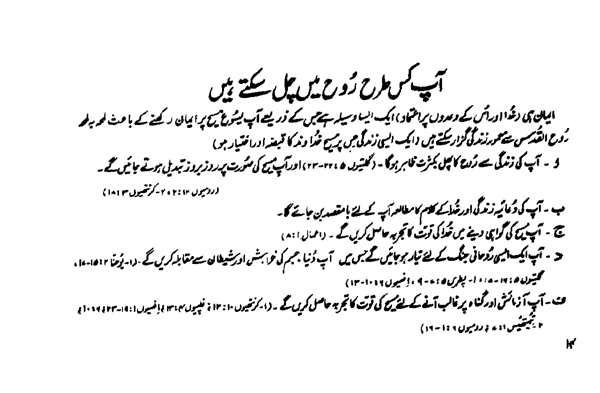 آپ کس طرح رُوح میں چل سکتے ہیں
ایمان ہی (خُدا اور اُس کے وعدوں پر اعتماد) ایک ایسا وسیلہ ہے جس کے ذریعے آپ یسُوع مسیح پر ایمان رکھنے کے باعث لمحہ بہ لمحہ
رُوح القُدس سے معمور زندگی گزار سکتے ہیں (ایک ایسی زندگی جس پر مسیح خُداوند کا قبضہ اور اختیار ہو)
و - آپ کی زندگی سے رُوح کا پھل بکثرت ظاہر ہوگا - (گلتیوں ۵:۲۲-۲۳) اور آپ مسیح کی صُورت پر روز بروز تبدیل ہوتے جائیں گے۔
(رومیوں ۱۲:۲، ۲۔کرنتھیوں ۳:۱۸)
ب - آپ کی دُعائیہ زندگی اور خُدا کے کلام کا مطالعہ آپ کے لئے بامقصد بن جائے گا۔
ج - آپ مسیح کی گواہی دینے میں خُدا کی قوت کا تجربہ حاصل کریں گے - (اعمال ۱:۸)
د - آپ ایک ایسی رُوحانی جنگ کے لئے تیار ہو جائیں گے جس میں آپ دُنیا، جسم کی خواہش اور شیطان سے مقابلہ کریں گے - (۱-یُوحنا ۲:۱۵-۱۷،
گلتیوں ۵:۱۶-۱۷، ۱-پطرس ۵:۷-۹، اِفسیوں ۶:۱۰-۱۳)
ف - آپ آزمائش اور گناہ پر غالب آنے کے لئے مسیح کی قوت کا تجربہ حاصل کریں گے - (۱-کرنتھیوں ۱۰:۱۳، فلپیوں ۴:۱۳، اِفسیوں ۱:۱۹-۲۳،
۲-تیمتھیُس ۱:۷، رومیوں ۶:۱-۱۶)
۱۴